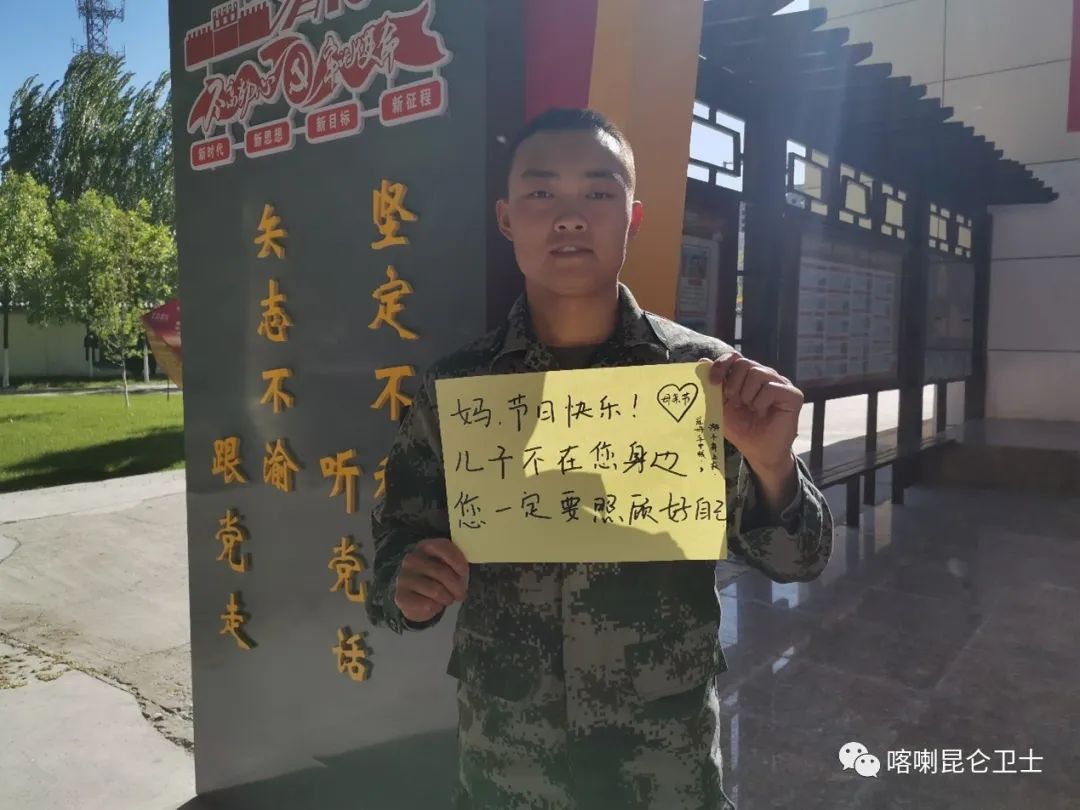 不忘初心 牢记使命
新时代
新思想
新目标
新征程
坚定不
听党话
矢志不渝
跟党走
妈,节日快乐!
母亲节
儿子不在您身边
您一定要照顾好自己
喀喇昆仑卫士